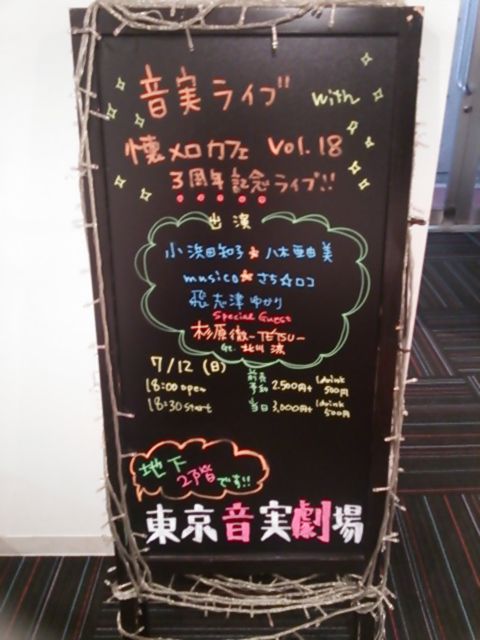 音実ライブ with
懐メロカフェ Vol.18
3周年記念ライブ!!
出演
小浜田知子★八木亜由美
musico★さち☆ロコ
飛志津ゆかり
Special Guest
杉原徹-TETSU-
Gt. 北川 涼
7/12(日)
18:00 open
18:30 start
前売予約 2,500円+1drink 500円
当日 3,000円+1drink 500円
地下
2階です!!
東京音実劇場